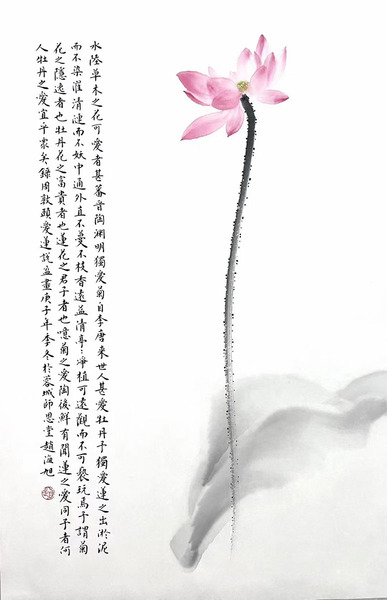 水陸草木之花可愛者甚蕃晉陶淵明獨愛菊自李唐來世人甚愛牡丹予獨愛蓮之出淤泥
而不染濯清漣而不妖中通外直不蔓不枝香遠益清亭:淨植可遠觀而不可褻玩焉予謂菊
花之隱逸者也牡丹花之富貴者也蓮花之君子者也噫菊之愛陶後鮮有聞蓮之愛同予者何
人牡丹之愛宜乎眾矣錄周敦頤愛蓮說並畫庚子年季冬於蓉城師恩堂趙海旭